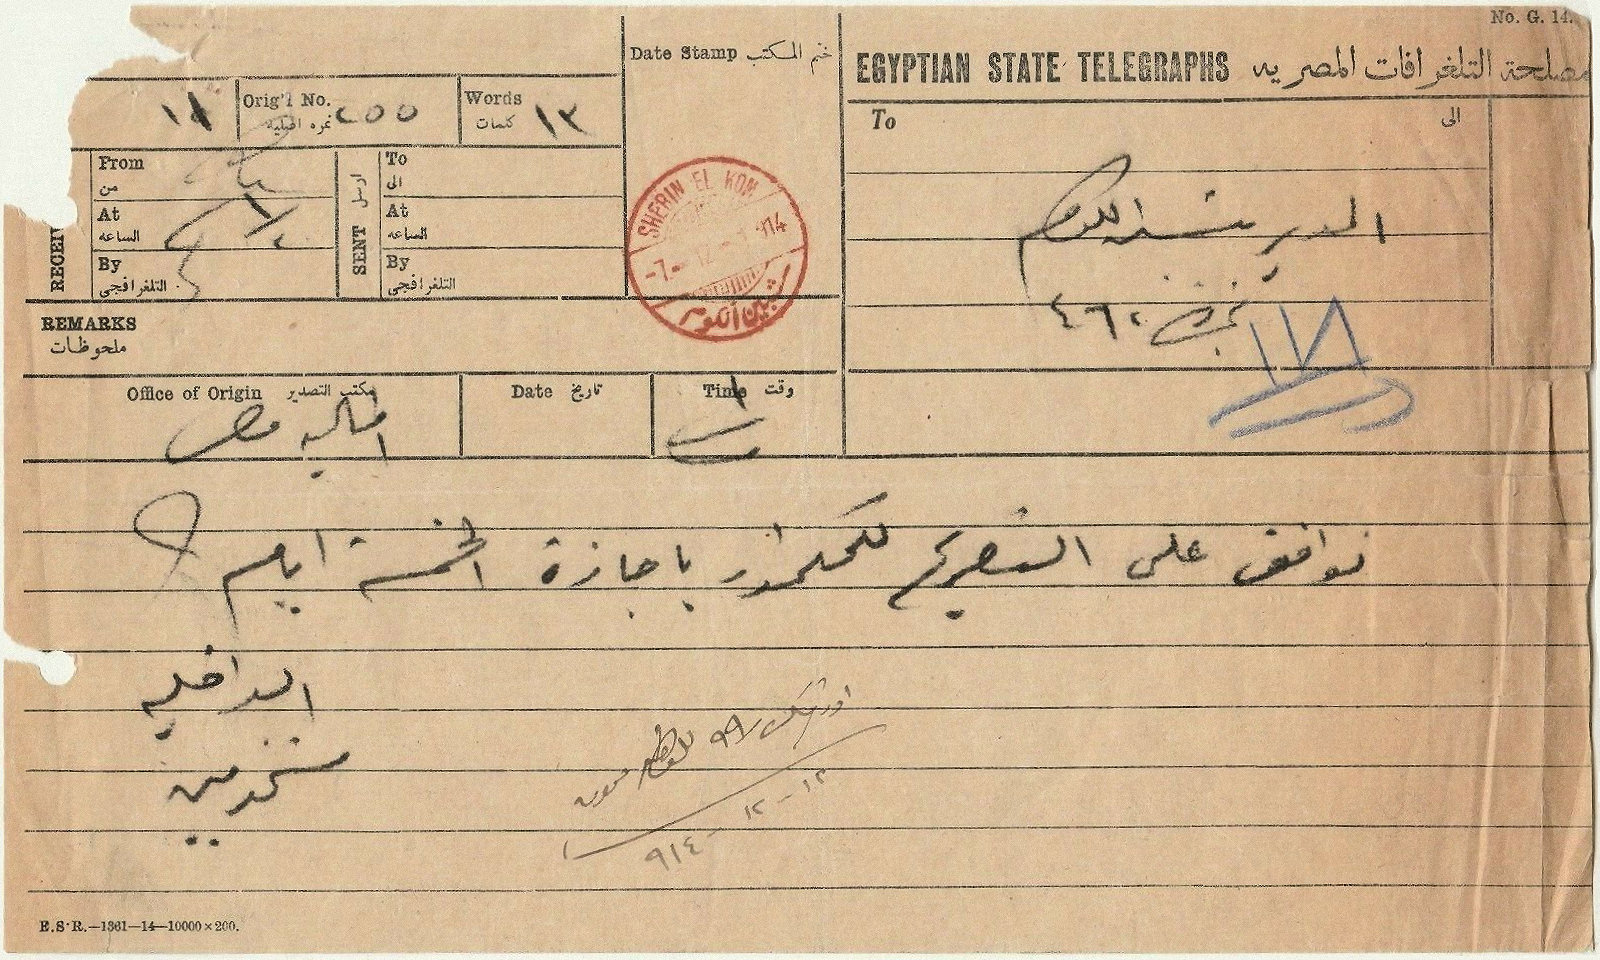 No. G. 14.
EGYPTIAN STATE TELEGRAPHS مصلحة التلغرافات المصريه
Date Stamp ختم المكتب
١١
Orig'l No. نمره اصلية ٢٥٥
Words كلمات ١٣
To الى
From من
At الساعه
By التلغرافجى
RECEI
SENT ارسل
To الى
At الساعه
By التلغرافجى
SHEBIN EL KOM
-7.- 12 914
شبين الكوم
المدير شبين الكوم
نمرة ٤٦٢
REMARKS ملحوظات
Office of Origin مكتب التصدير
Date تاريخ
Time وقت
مصر
نوافق على التصريح للحكمدار باجازة الخمسة ايام
الداخليه
مستخدمين
١٢-١٢-٩١٤
E.S.R.—1361—14—10000×200.